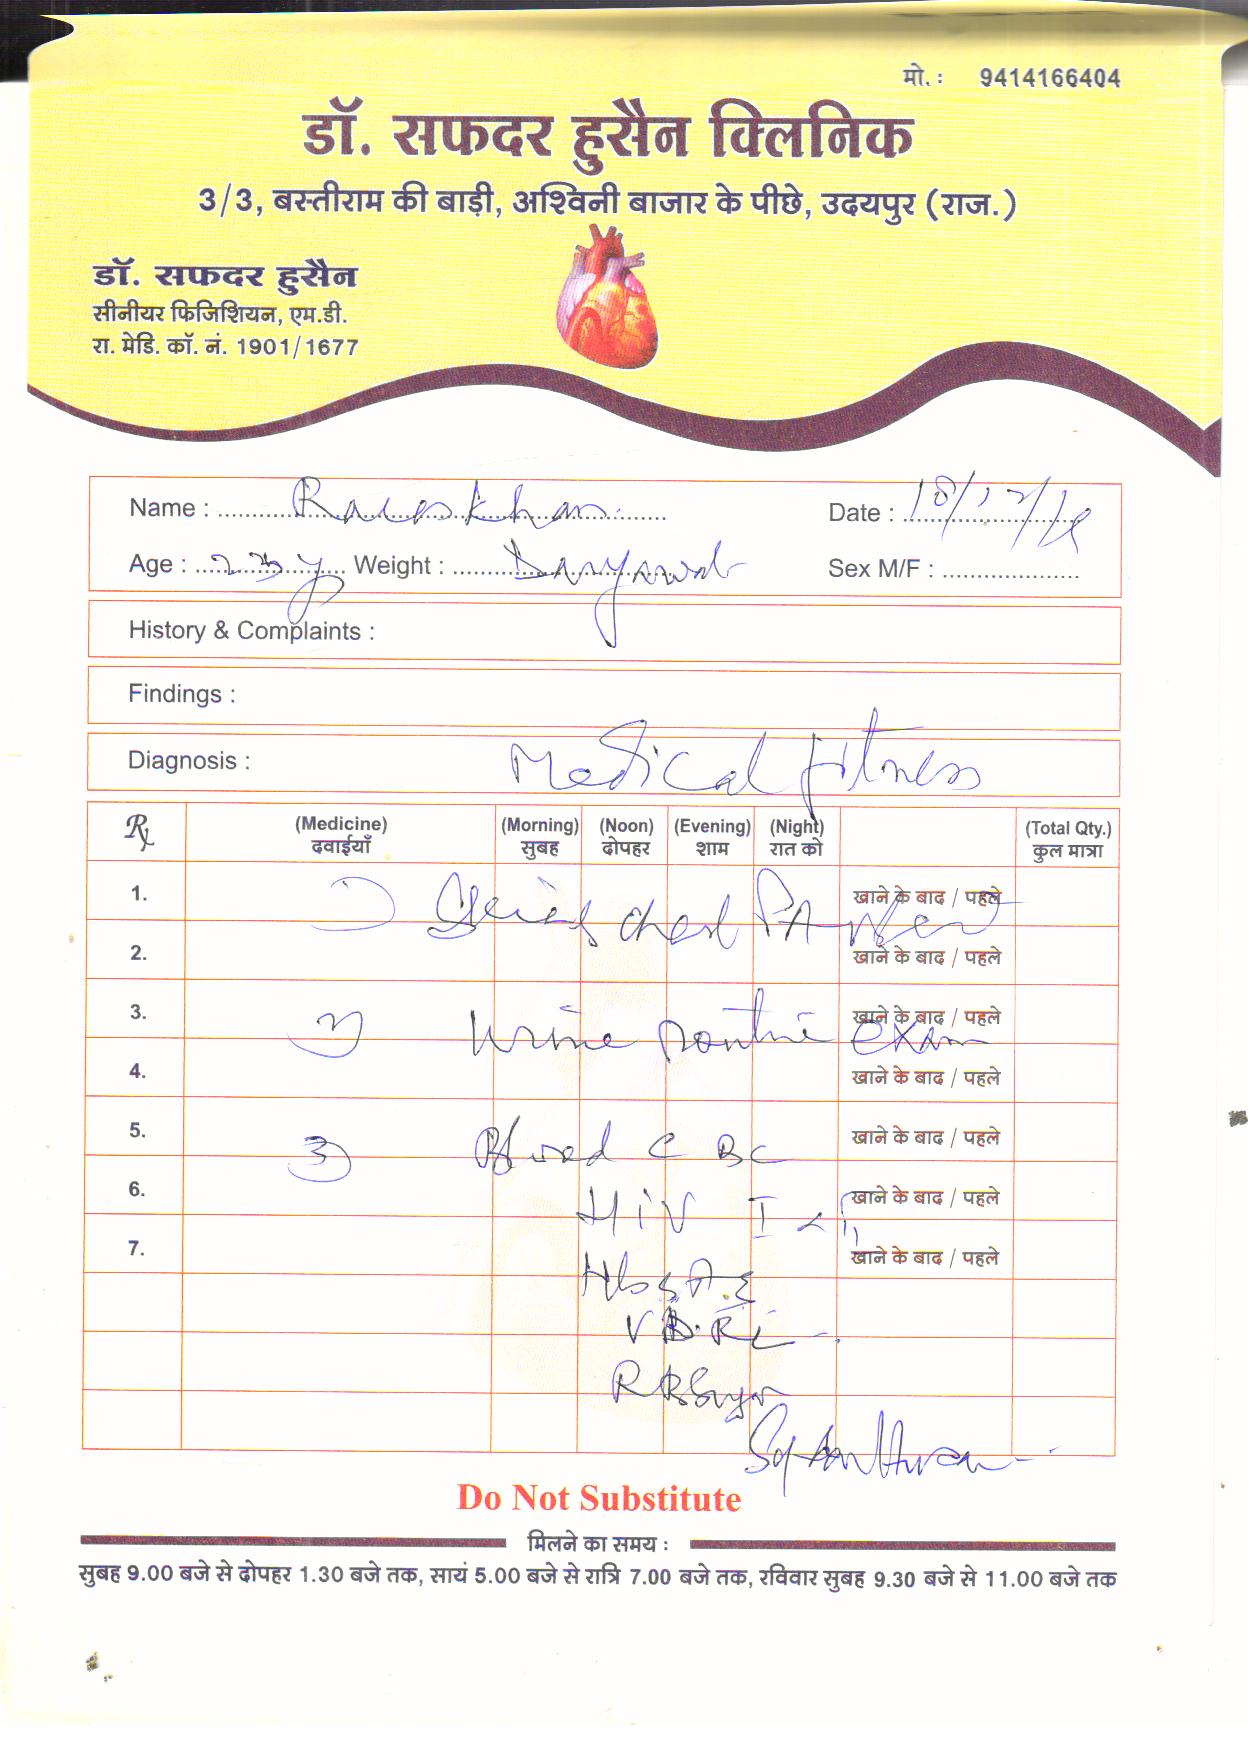 मो. : 9414166404
डॉ. सफदर हुसैन क्लिनिक
3/3, बस्तीराम की बाड़ी, अश्विनी बाजार के पीछे, उदयपुर (राज.)
डॉ. सफदर हुसैन
सीनीयर फिजिशियन, एम.डी.
रा. मेडि. कॉ. नं. 1901/1677
Name : Khan Date :
Age : 23y Weight : Sex M/F :
History & Complaints :
Findings :
Diagnosis : Medical fitness
Rx (Medicine) (Morning) (Noon) (Evening) (Night) (Total Qty.)
दवाईयाँ सुबह दोपहर शाम रात को कुल मात्रा
1. 1) chest PA view खाने के बाद / पहले
2. खाने के बाद / पहले
3. 2) Urine routine exam खाने के बाद / पहले
4. खाने के बाद / पहले
5. 3) Blood C BC खाने के बाद / पहले
6. HiV I खाने के बाद / पहले
7. खाने के बाद / पहले
HbsAg
V.D.RL
R B Sugar
Do Not Substitute
मिलने का समय :
सुबह 9.00 बजे से दोपहर 1.30 बजे तक, सायं 5.00 बजे से रात्रि 7.00 बजे तक, रविवार सुबह 9.30 बजे से 11.00 बजे तक